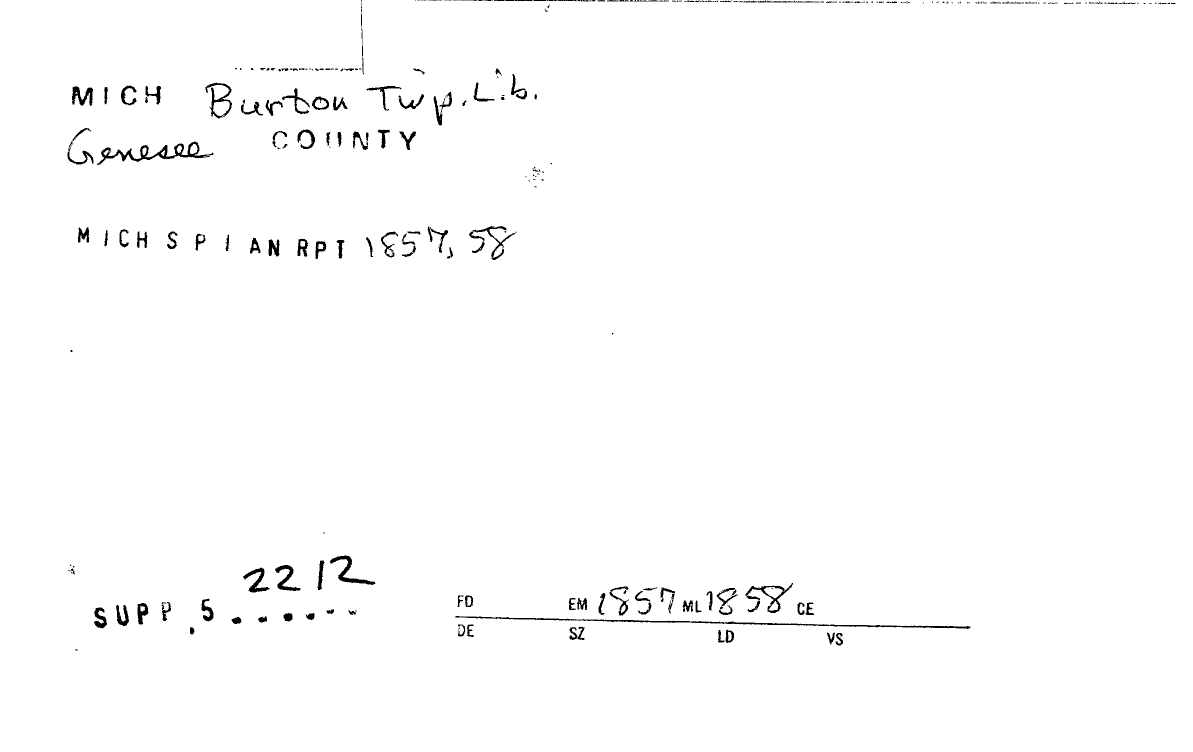 MICH Burton Twp. Lib.
Genesee COUNTY
MICH S P I AN RPT 1857, 58
2212
SUPP.5......
FD EM 1857 ML 1858 CE
DE SZ LD VS